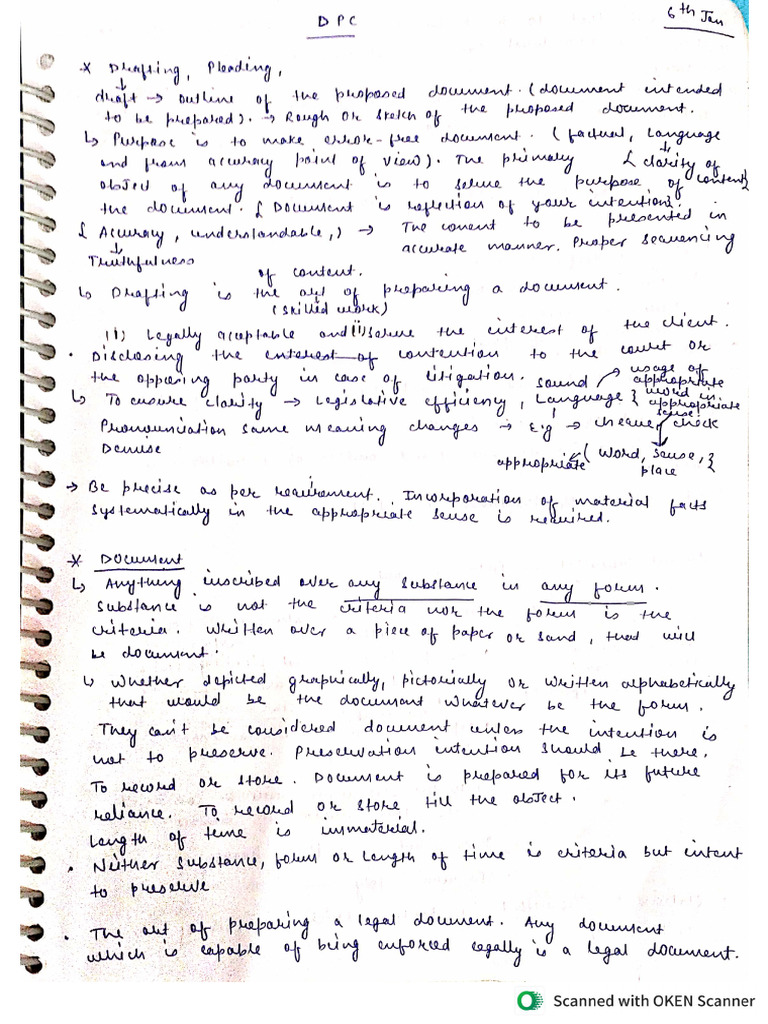 DPC
6th Jan
* Drafting, Pleading,
draft → outline of the proposed document. (document intended
to be prepared). → Rough or sketch of the proposed document.
↳ Purpose is to make error-free document. (factual, language
and from accuracy point of view). The primary { clarity of
object of any document is to serve the purpose of content}
the document. { Document is reflection of your intention}
{ Accuracy, understandable,) → The conent to be presented in
↓ accurate manner. Proper sequencing
Truthfulness
of content.
↳ Drafting is the art of preparing a document.
(skilled work)
(i) Legally acceptable and (ii) serve the interest of the client.
• Disclosing the enterest of contention to the court or
the opposing party in case of litigation. sound → usage of
appropriate
↳ To ensure clarity → Legislative efficiency, Language } word in
appropriate
sense.
Pronounciation same meaning changes → E.g → cheque, check
Demise
appropriate ← ( word, sense, }
place
→ Be precise as per requirement. Incorporation of material facts
systematically in the appropriate sense is required.
* Document
↳ Anything inscribed over any substance in any form.
Substance is not the criteria nor the form is the
criteria. Written over a piece of paper or sand, that will
be document.
↳ Whether depicted graphically, pictorially or written alphabetically
that would be the document whatever be the form.
They can't be considered document unless the intention is
not to preserve. Preservation intention should be there.
To record or store. Document is prepared for its future
reliance. To record or store till the object.
Length of time is immaterial.
• Neither substance, form or length of time is criteria but intent
to preserve
• The art of preparing a legal document. Any document
which is capable of being enforced legally is a legal document.
Scanned with OKEN Scanner